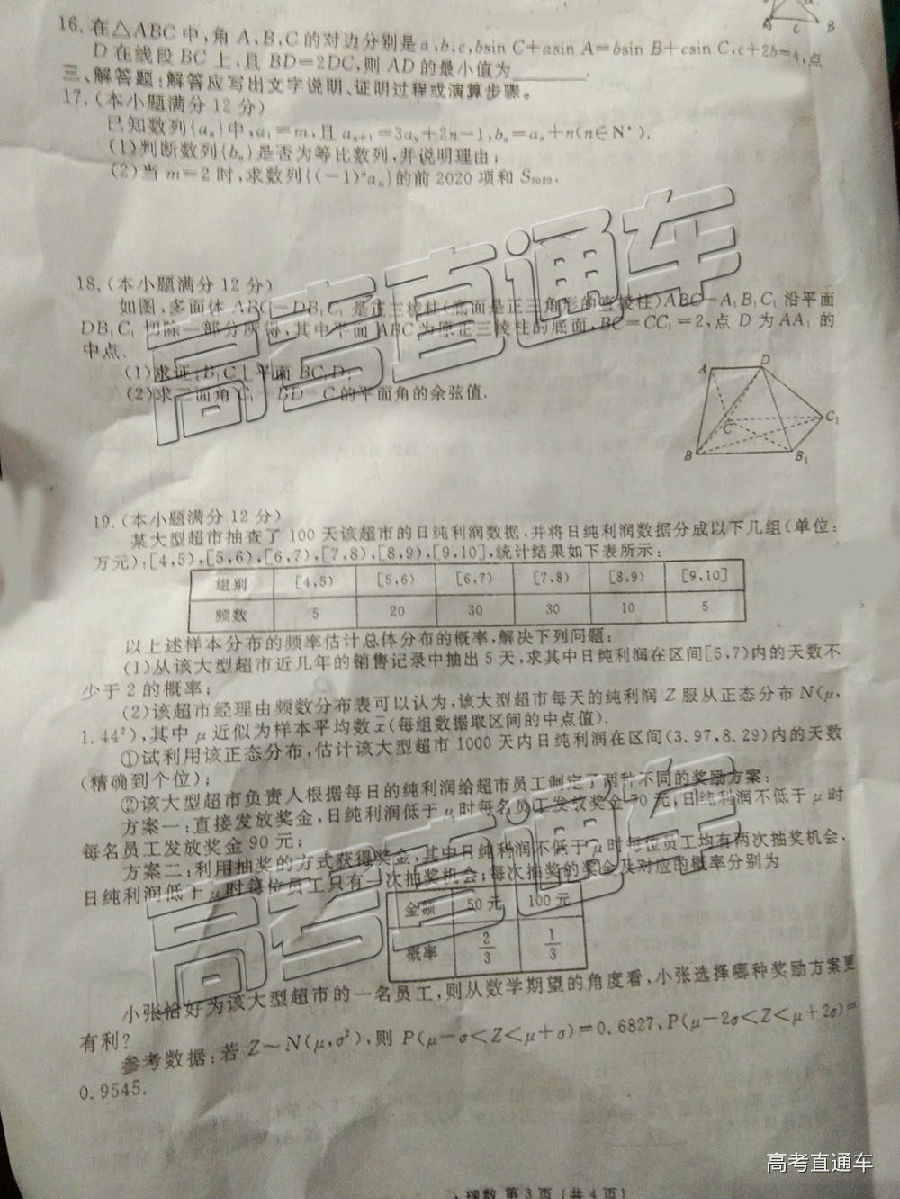 16.在△ABC中,角A,B,C的对边分别是a,b,c,bsin C+asin A=bsin B+csin C,c+2b=4,点
D在线段BC上,且BD=2DC,则AD的最小值为________.
三、解答题:解答应写出文字说明、证明过程或演算步骤。
17.(本小题满分12分)
已知数列{aₙ}中,a₁=m,且aₙ₊₁=3aₙ+2n-1,bₙ=aₙ+n(n∈N*).
(1)判断数列{bₙ}是否为等比数列,并说明理由;
(2)当m=2时,求数列{(-1)ⁿaₙ}的前2020项和S₂₀₂₀.
18.(本小题满分12分)
如图,多面体ABC-DB₁C₁是正三棱柱(底面是正三角形的直棱柱)ABC-A₁B₁C₁沿平面
DB₁C₁切除一部分所得,其中平面ABC为原正三棱柱的底面,BC=CC₁=2,点D为AA₁的
中点.
(1)求证:B₁C⊥平面BC₁D;
(2)求二面角C₁-BD-C的平面角的余弦值.
A D
C C₁
B B₁
19.(本小题满分12分)
某大型超市抽查了100天该超市的日纯利润数据,并将日纯利润数据分成以下几组(单位:
万元):[4,5),[5,6),[6,7),[7,8),[8,9),[9,10],统计结果如下表所示:
组别 [4,5) [5,6) [6,7) [7,8) [8,9) [9,10]
频数 5 20 30 30 10 5
以上述样本分布的频率估计总体分布的概率,解决下列问题:
(1)从该大型超市近几年的销售记录中抽出5天,求其中日纯利润在区间[5,7)内的天数不
少于2的概率;
(2)该超市经理由频数分布表可以认为,该大型超市每天的纯利润Z服从正态分布N(μ,
1.44²),其中μ近似为样本平均数x̄(每组数据取区间的中点值).
①试利用该正态分布,估计该大型超市1000天内日纯利润在区间(3.97,8.29)内的天数
(精确到个位);
②该大型超市负责人根据每日的纯利润给超市员工制定了两种不同的奖励方案:
方案一:直接发放奖金,日纯利润低于μ时每名员工发放奖金70元,日纯利润不低于μ时
每名员工发放奖金90元;
方案二:利用抽奖的方式获得奖金,其中日纯利润不低于μ时每位员工均有两次抽奖机会,
日纯利润低于μ时每位员工只有一次抽奖机会;每次抽奖的奖金及对应的概率分别为
金额 50元 100元
概率 2/3 1/3
小张恰好为该大型超市的一名员工,则从数学期望的角度看,小张选择哪种奖励方案更
有利?
参考数据:若Z~N(μ,σ²),则P(μ-σ<Z<μ+σ)=0.6827,P(μ-2σ<Z<μ+2σ)=
0.9545.
高考直通车
高考直通车
理数 第3页(共4页)
高考直通车